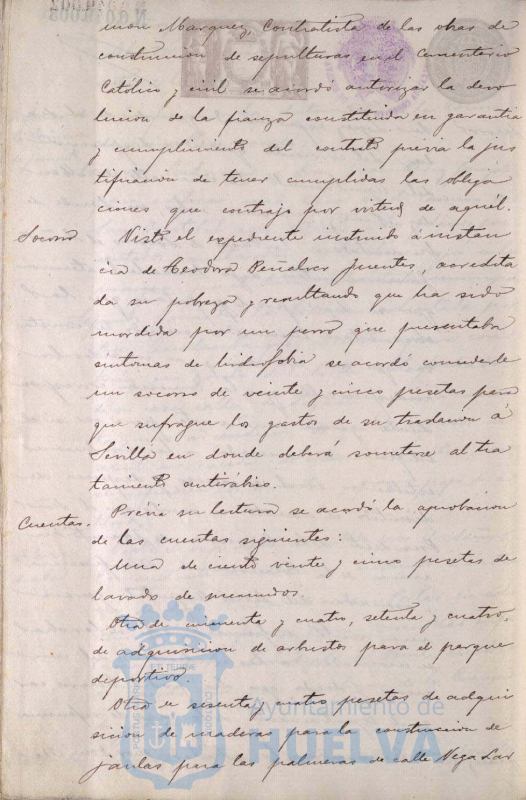 mon Marquez, Contratista de las obras de
construccion de sepulturas en el Cementerio
Católico y civil se acordó autorizar la devo
lucion de la fianza constituida en garantia
y cumplimiento del contrato previa la jus
tificacion de tener cumplidas las obliga
ciones que contrajo por virtud de aquél.
Socorro Visto el expediente instruido á instan
cia de Teodora Peñalver Fuentes, acredita
da su pobreza y resultando que ha sido
mordida por un perro que presentaba
sintomas de hidrofobia se acordó concederle
un socorro de veinte y cinco pesetas para
que sufrague los gastos de su traslacion á
Sevilla en donde deberá someterse al tra
tamiento antirábico.
Cuentas. Prévia su lectura se acordó la aprobacion
de las cuentas siguientes:
Una de ciento veinte y cinco pesetas de
lavado de menudos.
Otra de cincuenta y cuatro, setenta y cuatro,
de adquisicion de arbustos para el parque
deportivo.
Otra de sesenta y cuatro pesetas de adqui
sicion de maderas para la construccion de
jaulas para las palmeras de calle Vega Lar
Ayuntamiento de
HUELVA